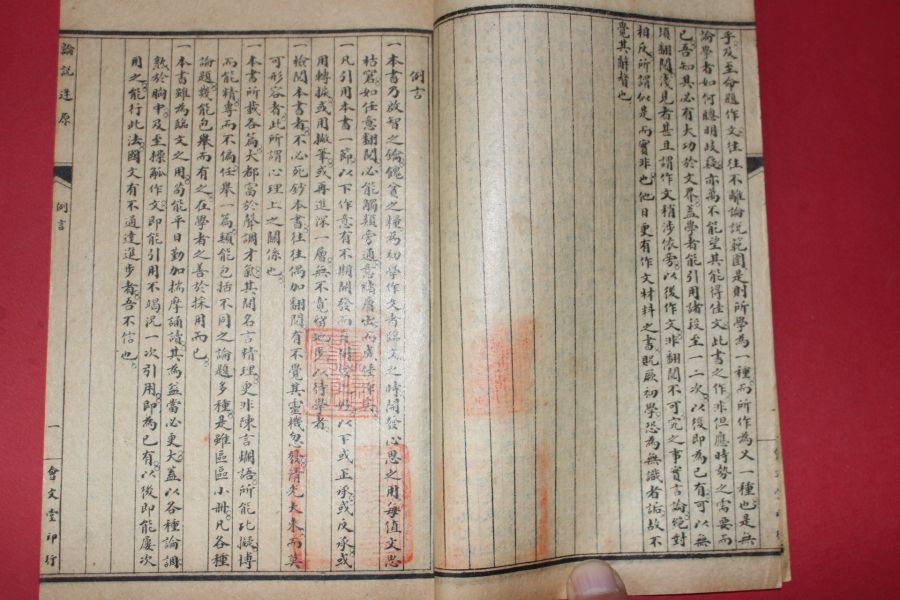 乎及至命題作文往往不離論說範圍是則所學為一種而所作為又一種也是無
論學者如何聰明歧嶷亦萬不能望其能得佳文此書之作非但應時勢之需要而
已吾知其必有大功於文界蓋學者能引用諸段至一二次以後即為己有可以無
須翻閱淺見者甚且謂作文稍涉依旁以後作文非翻閱不可究之事實言論絕對
相反所謂似是而實非也他日更有作文材料之書貺厥初學恐為無識者詬故不
覺其辭贅也
例言
一本書乃啟智之鑰餽貧之糧為初學作文者臨文之時開發心思之用每值文思
枯窘如任意翻閱必能觸類旁通意緒層出而
一凡引用本書一節以下作意有不期開發而以下或正承或反承或
用轉捩或用撇筆或再進深一層無不寬綽地步以待學者
一檢閱本書者不必死鈔本書往往偶加翻閱有不覺其靈機忽發清光大來而莫
可形容者此所謂心理上之關係也
一本書所載各篇大都富於聲調才氣其間名言精理更非陳言爛語所能比擬博
而能精專而不偏任舉一篇類能包括不同之論題多種是雖區區小冊凡各種
論題幾能包舉而有之在學者之善於採用而已
一本書雖為臨文之用苟能平日勤加揣摩誦讀其為益當必更大蓋以各種論調
熟於胸中及至操觚作文即能引用不竭況一次引用即為己有以後即能屢次
用之能行此法國文有不通達進步者吾不信也
論說進原
例言
一
會文堂印行